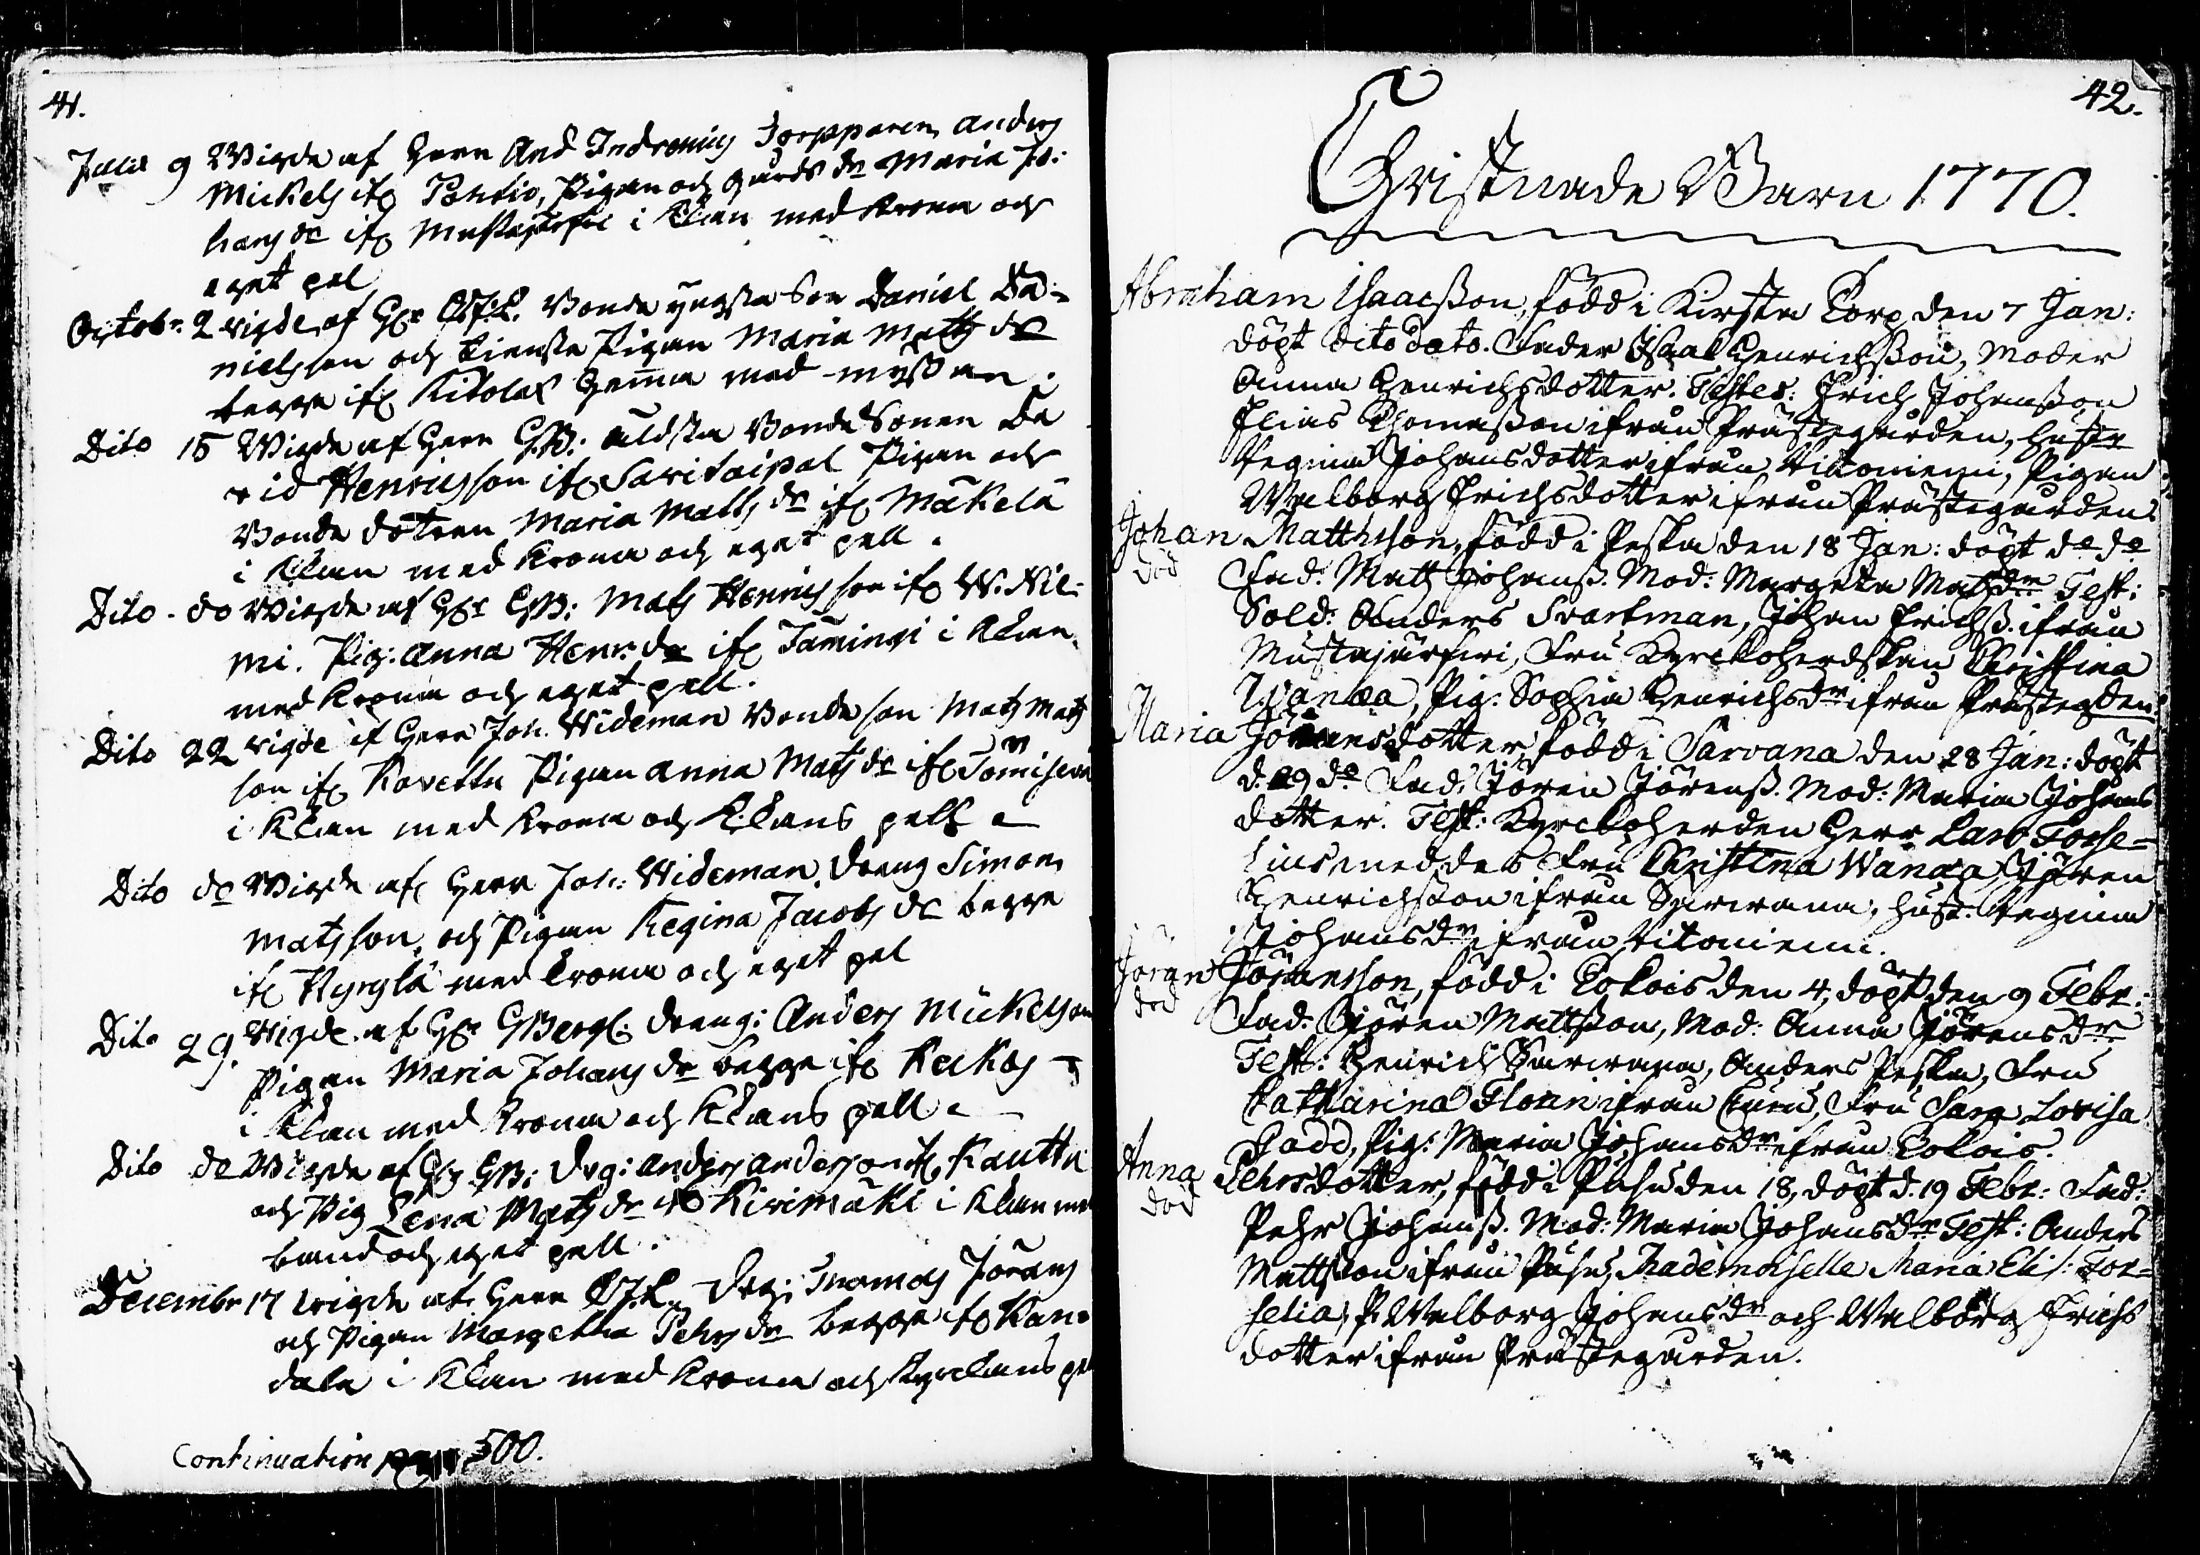 41.
Julii 9 Wigde af Herr And Indrenius Torpparen Anders
Mickels ifr Pentio, Pigan och gårds dr Maria Jo:
hans dr ifr Mustajärfvi i Klän med Krona och
eget pel
Octobr. 2 wigde af Hr Bonde yngsta Son Daniel Da=
nielsson och tiensta Pigan Maria Matts dr
begge ifr Kitola hemma med myssan.
Dito 15 Wigde af Herr G.B: äldsta Bonde Sonen Da
vid Henricsson ifr Savitaipal Pigan och
Bonde dotren Maria Matts dr ifr Mäkelä
i Klän med Krona och eget pell.
Dito - do Wigde af Hr GB: Mats Henricsson ifr W. Nil-
mi. Pig: Anna Henr: dr ifr Tämingi i Klän
med Krona och eget pell.
Dito 22 wigde af Herr Joh. Wideman Bonde son Mats Mats
son ifr Kovettu Pigan Anna Mats dr ifr
i Klän med Krona och K:kans pell
Dito do Wigde af Herr Joh: Wideman Dreng Simon
Matsson, och Pigan Regina Jacobs dr begge
ifr Hyrylä med Krona och eget pel
Dito 29. Wigde af Hr GBergh: dreng: Anders Mickelson
Pigan Maria Johans dr begge ifr Keikos
i Klän med Krona och K:kans pell
Dito do Wigde af Hr GB: drg: Anders Andersson ifr Kauttu
och Pig Lena Mats dr ifr Kirimäki i Klän med
band och eget pell.
Decembr 17 wigde af Herr Drg: Thomas Jörans
och Pigan Margetha Pehrs dr begge ifr Kan=
dala i Klän med Krona och Kyrckans pe
Continuation pag 500.
42.
Christnade Barn 1770.
Abraham Isaacsson, född i Kirsta Torp den 7 Jan:
döpt dito dato. Fader Isaac Henrichsson, Moder
Anna Henrichsdotter. Testes: Erich Johansson
Elias Thomasson ifrån Prästegården, hustr
Regina Johansdotter ifrån Vitoniemi, Pigan
Walborg Erichsdotter ifrån Prästegården
Johan Matthsson, född i Peska den 18 Jan: döpt do do
död
Fad: Matts Johanss. Mod: Margeta Mats dr Test:
Sold: Anders Svartman, Johan Erichss. ifrån
Mustajärfwi, Fru Kyrckoherdskan Christina
Wanæa, Pig: Sophia Henrichsdr ifrån Prästegden
Maria Jöransdotter född i Sarvana den 28 Jan: döpt
d. 29 do Fad: Jören Jörenss. Mod: Maria Johans
dotter. Test: Kyrckoherden Herr Lars Forse-
lius med des Fru Christina Wanæa, Jören
Henrichsson ifrån Sarvana, hust. Regina
Johansdr ifrån Vitoniemi.
Jöran Jöransson, född i Tokois den 4, döpt den 9 Febr.:
död
Fad: Jören Mattsson, Mod: Anna Jörensdr
Test: Henrich Sarvana, Anders Peska, Fru
Catharina Florin ifrån Fru Sara Lovisa
Gadd, Pig: Maria Johansdr ifrån Tokois.
Anna Pehrsdotter, född i Pusu den 18, döpt d. 19 Febr: Fad:
död
Pehr Johanss. Mod: Maria Johansdr Test: Anders
Mattsson ifrån Pusu, Mademoiselle Maria Elis: For=
selia, P. Walborg Johansdr och Walborg Erichs
dotter ifrån Prästegården.